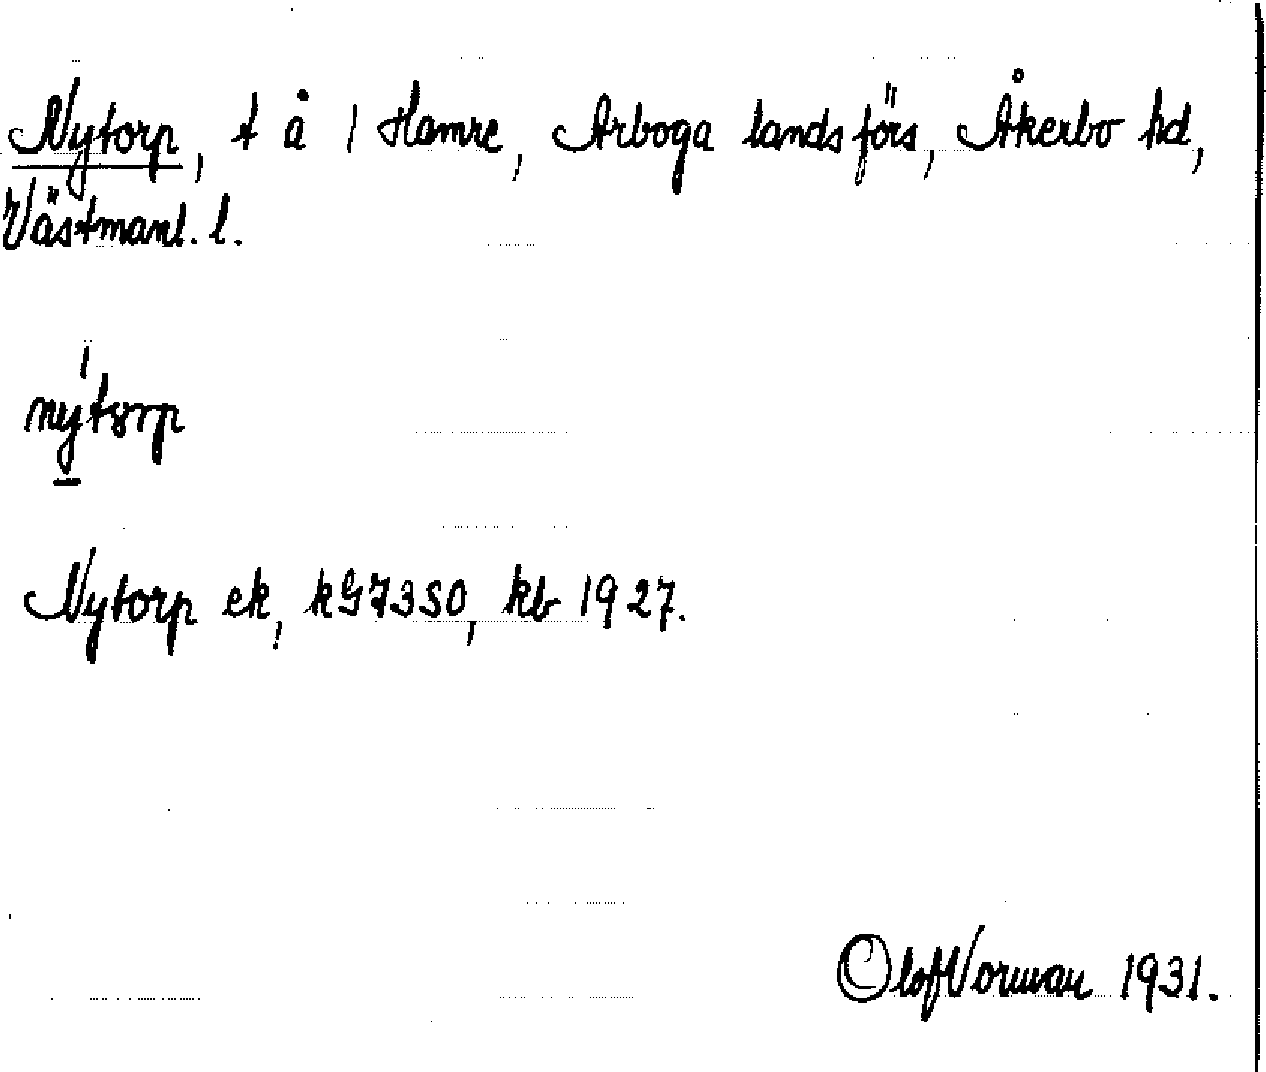 Nytorp, t å 1 Hamre, Arboga landsförs, Åkerbo hd,
Västmanl. l.
nýtorp
Nytorp ek, kG7350, kb 1927.
Olof Vorman 1931.